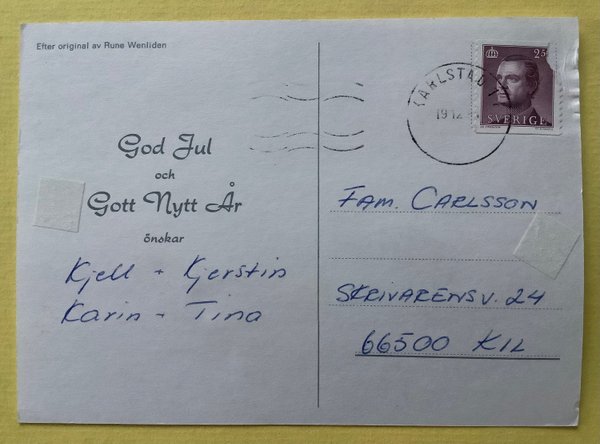 Efter original av Rune Wenliden
God Jul
och
Gott Nytt År
önskar
Kjell + Kjerstin
Karin - Tina
KARLSTAD 1
19 12
25
SVERIGE
FAM. CARLSSON
SKRIVARENSV. 24
66500 KIL